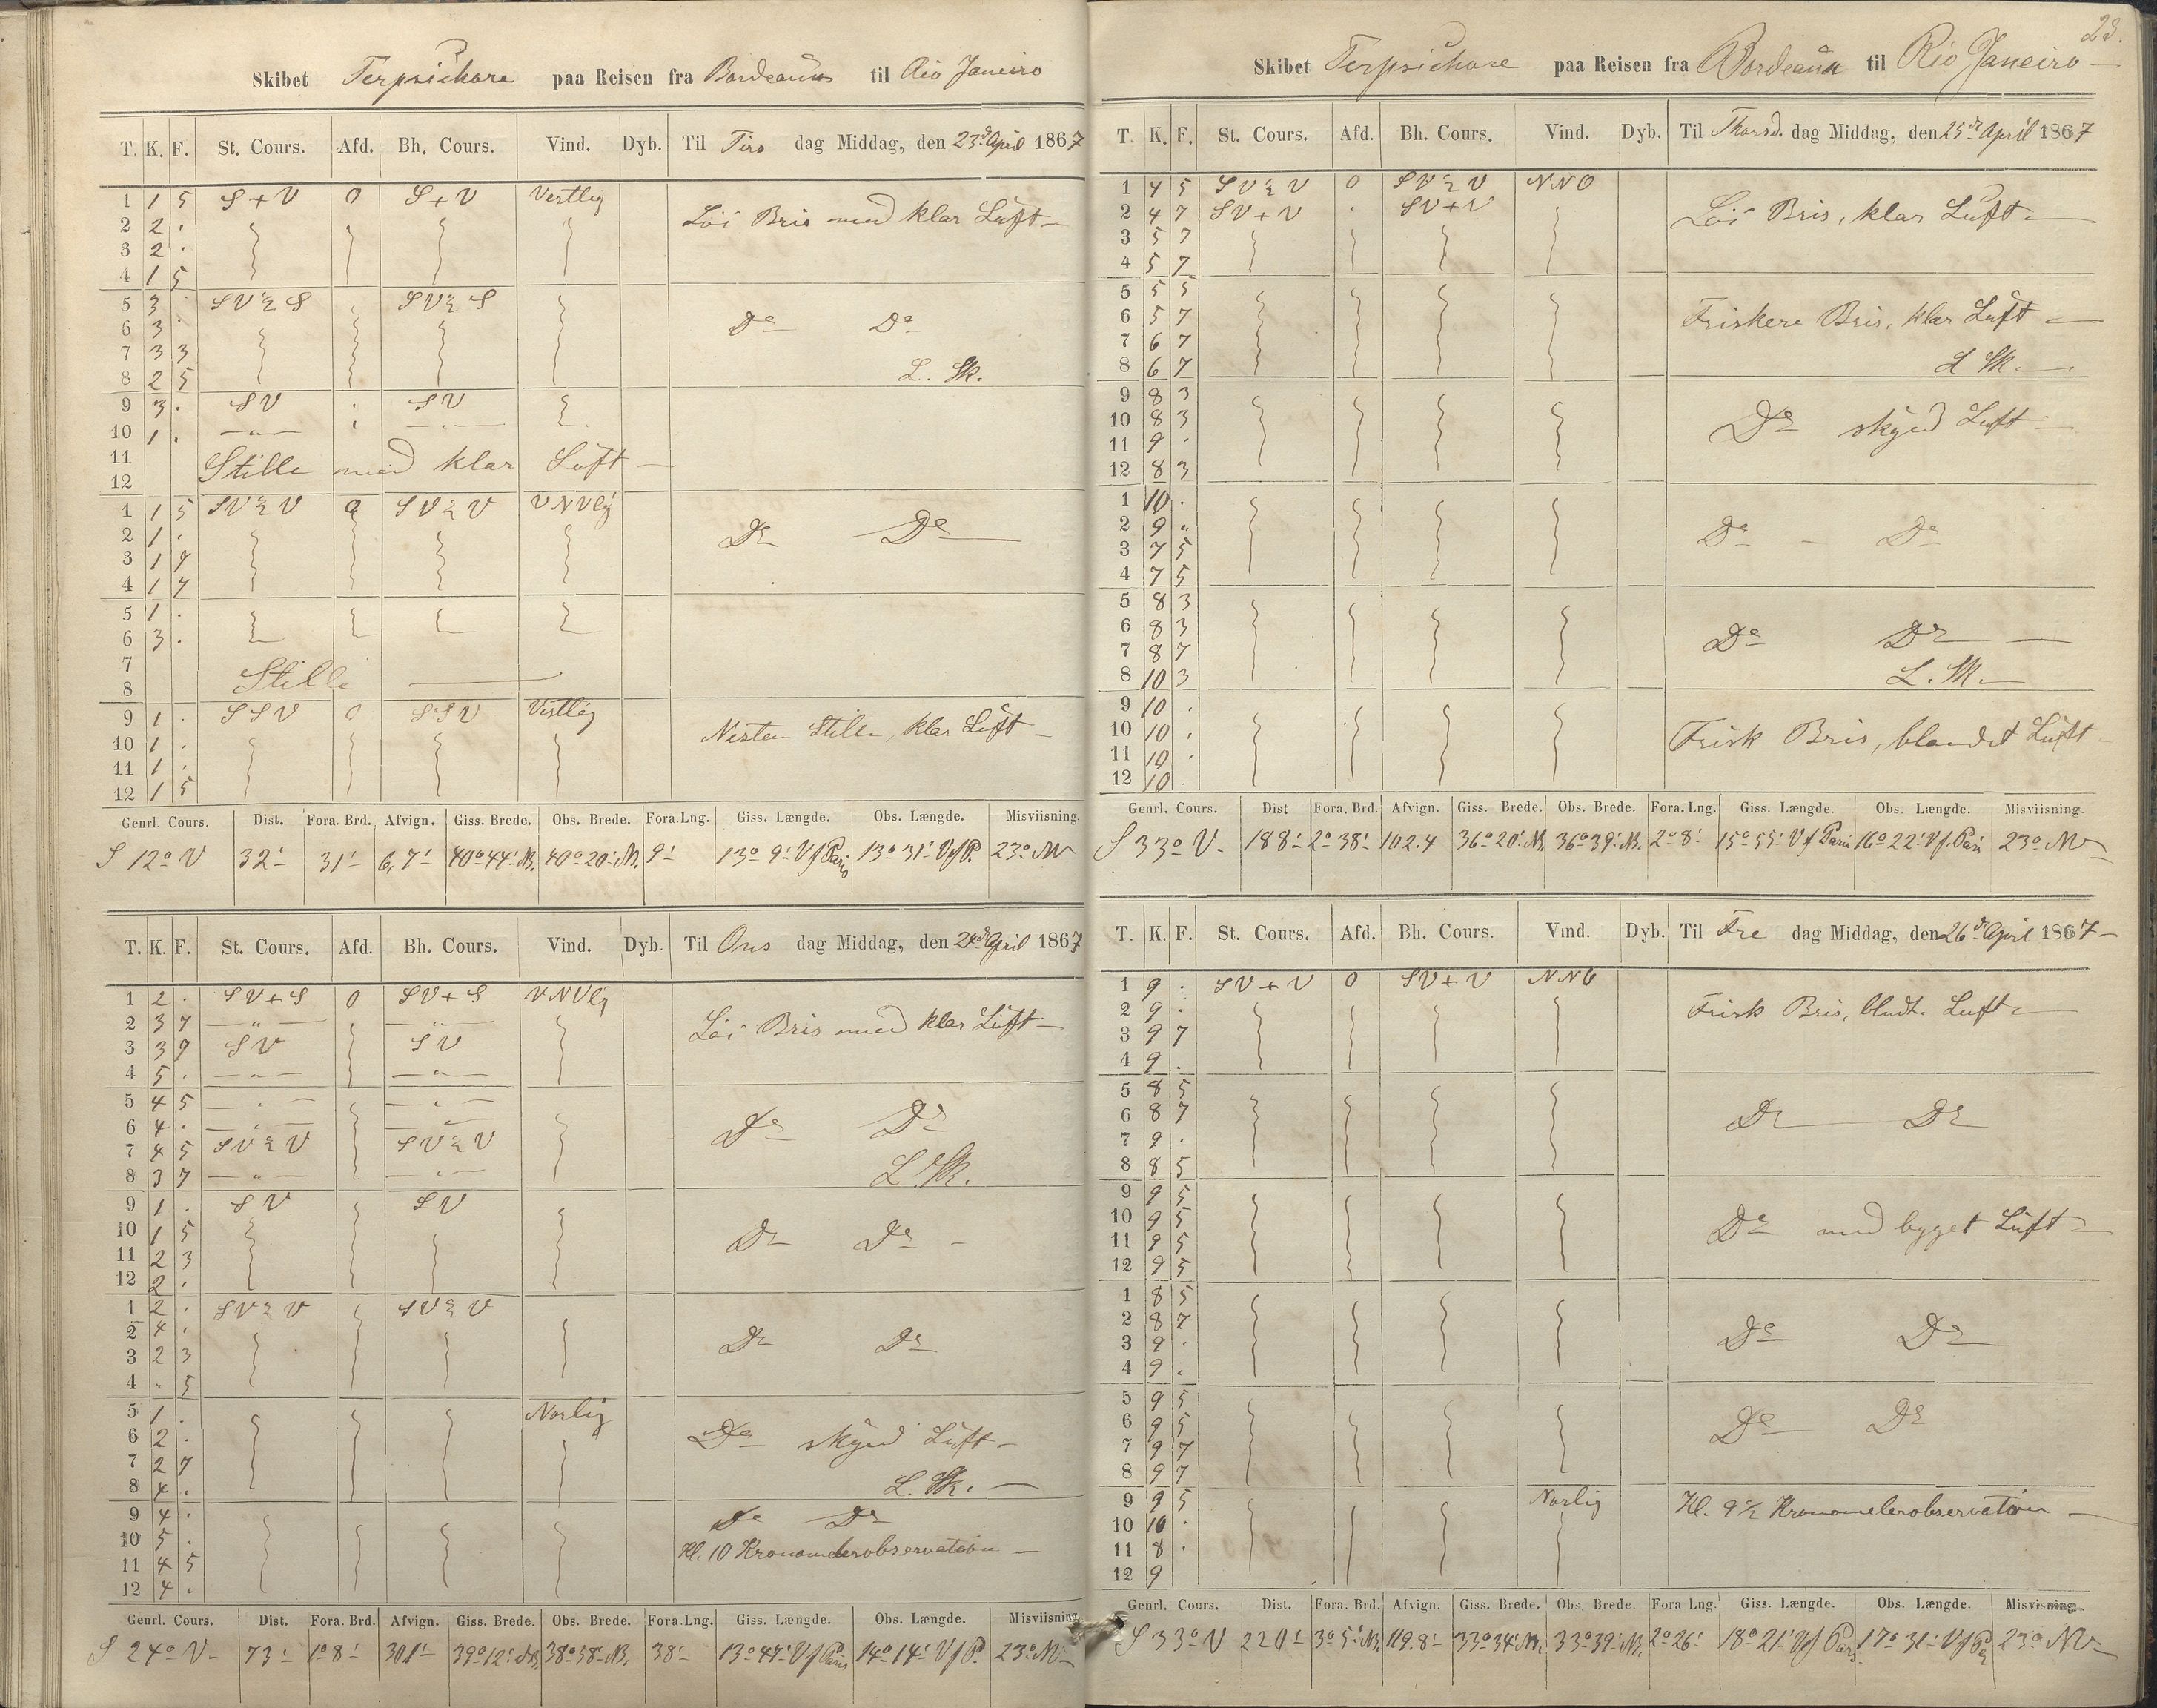 Skibet Terpsichore paa Reisen fra Bordeaux til Rio Janeiro
T. K. F. St. Cours. Afd. Bh. Cours. Vind. Dyb. Til Tirs dag Middag, den 23d April 1867
1 1 5 S + V 0 S + V Vestlig
2 2 . Löi Bris med klar Luft
3 2 .
4 1 5
5 3 . SV ½ S SV ½ S
6 3 . Do Do
7 3 3
8 2 5 L. Sk.
9 3 . SV SV
10 1 . — " — — " —
11 Stille med klar Luft —
12
1 1 5 SV ½ V 0 SV ½ V VNVlig
2 1 . Do Do
3 1 7
4 1 7
5 1 .
6 3 .
7 Stille
8
9 1 . SSV 0 SSV Vestlig
10 1 . Nesten Stille, klar Luft
11 1 .
12 1 5
Genrl. Cours. Dist. Fora. Brd. Afvign. Giss. Brede. Obs. Brede. Fora. Lng. Giss. Længde. Obs. Længde. Misviisning.
S 12° V 32' 31' 6,7' 40° 44' N. 40° 20' N. 9' 13° 9' V f Paris 13° 31' V f P. 23° NV
T. K. F. St. Cours. Afd. Bh. Cours. Vind. Dyb. Til Ons dag Middag, den 24d April 1867
1 2 . SV + S 0 SV + S VNVlig
2 3 7 — " — — " — Löi Bris med klar Luft
3 3 7 SV SV
4 5 . — " — — " —
5 4 5 — " — — " —
6 4 . — " — — " — Do Do
7 4 5 SV ½ V SV ½ V
8 3 7 — " — — " — L. Sk.
9 1 . SV SV
10 1 5 Do Do
11 2 3
12 2 .
1 2 . SV ½ V SV ½ V
2 4 .
3 2 3 Do Do
4 " 5
5 1 . Norlig
6 2 . Do skyed Luft
7 2 7
8 4 . L. Sk.
9 4 . Do Do
10 5 . Kl. 10 Kronometerobservation
11 4 5
12 4 .
Genrl. Cours. Dist. Fora. Brd. Afvign. Giss. Brede. Obs. Brede. Fora. Lng. Giss. Længde. Obs. Længde. Misviisning.
S 24° V 73' 1° 8' 301' 39° 12' N. 38° 58' N. 38' 13° 47' V f Paris 14° 14' V f P. 23° NV
23.
Skibet Terpsichore paa Reisen fra Bordeaux til Rio Janeiro
T. K. F. St. Cours. Afd. Bh. Cours. Vind. Dyb. Til Thorsd. dag Middag, den 25d April 1867
1 4 5 SV ½ V 0 SV ½ V NNO
2 4 7 SV + V . SV + V Löi Bris, klar Luft
3 5 7
4 5 7
5 5 5
6 5 7 Friskere Bris, klar Luft
7 6 7
8 6 7 L Sk.
9 8 3
10 8 3 Do skyed Luft
11 9 .
12 8 3
1 10 .
2 9 " Do Do
3 7 5
4 7 5
5 8 3
6 8 3 Do Do
7 8 7
8 10 3 L. Sk.
9 10 .
10 10 . Frisk Bris, blandet Luft
11 10 .
12 10 .
Genrl. Cours. Dist Fora. Brd. Afvign. Giss. Brede. Obs. Brede. Fora. Lng. Giss. Længde. Obs. Længde. Misviisning.
S 33° V. 188' 2° 38' 102.4 36° 20' N. 36° 39' N. 2° 8' 15° 55' V f Paris 16° 22' V f. Paris 23° NV
T. K. F. St. Cours. Afd. Bh. Cours. Vind. Dyb. Til Fre dag Middag, den 26d April 1867
1 9 . SV + V 0 SV + V NNO
2 9 . Frisk Bris, bludt. Luft
3 9 7
4 9 .
5 8 5
6 8 7 Do Do
7 9 .
8 8 5
9 9 5
10 9 5 Do med bygget Luft
11 9 5
12 9 5
1 8 5
2 8 7 Do Do
3 9 .
4 9 .
5 9 5
6 9 5 Do Do
7 9 7
8 9 7
9 9 5 Norlig Kl. 9 ½ Kronometerobservation
10 10 .
11 8 .
12 9
Genrl. Cours. Dist. Fora. Brd. Afvign. Giss. Brede. Obs. Brede. Fora Lng. Giss. Længde. Obs. Længde. Misvisning.
S 33° V 220' 3° 5' N. 119.8' 33° 34' N. 33° 39' N. 2° 26' 18° 21' V f Paris 17° 31' V f Pa 23° NV